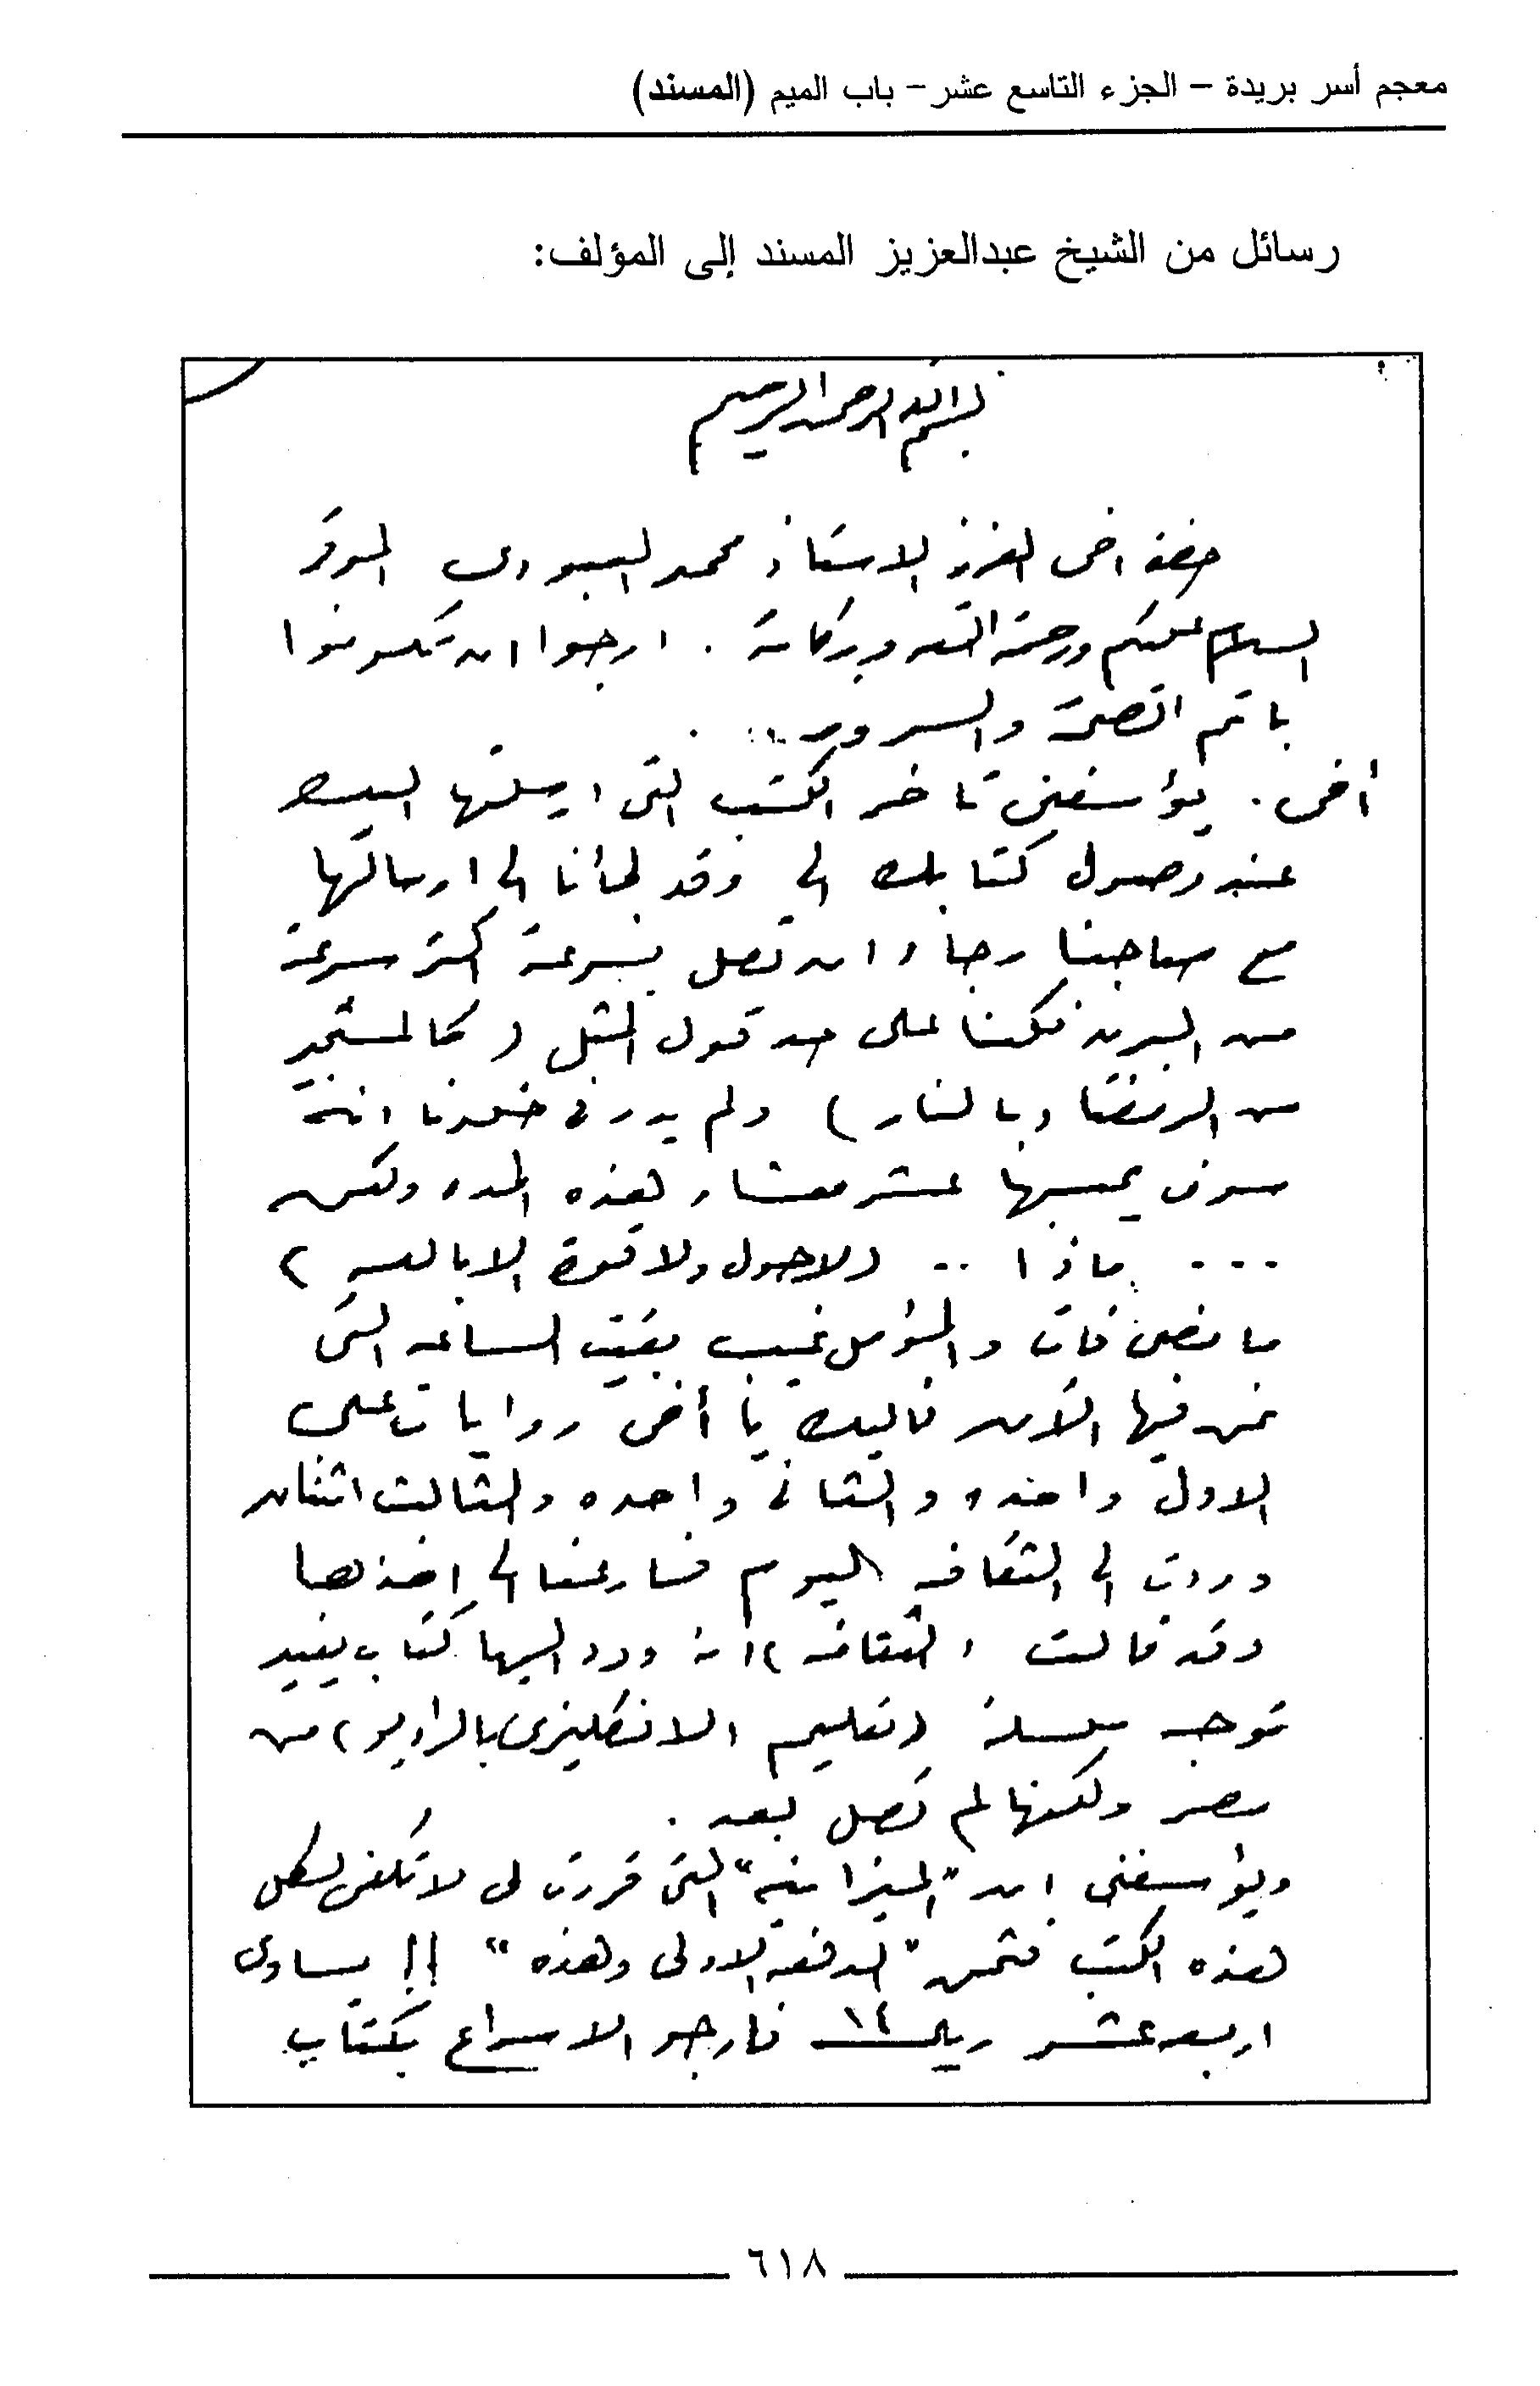 معجم أسر بريدة – الجزء التاسع عشر – باب الميم (المسند)
رسائل من الشيخ عبدالعزيز المسند إلى المؤلف:
بسم الله الرحمن الرحيم
حضرة اخى العزيز الاستاذ محمد العبودى الموقر
السلام عليكم ورحمة الله وبركاته . ارجوا ان تكونوا
باتم الصحة والسرور ..
أخى . يؤسفنى تاخر الكتب التى ارسلتها اليك
عند وصول كتابك الي وقد لجأنا الى ارسالها
مع صاحبنا رجاء ان تصل بسرعة اكثر سرعة
من البريد فكنا على حد قول المثل ( كالمستجير
من الرمضا وبالنار ) ولم يدر فى خلدنا انه
سوف يحبسها عشر معشار هذه المده ولكن
... ماذا .. ( لاحول ولا قوة الا بالله )
ما مضى فات والمؤمل غيب بقيت الساعه التى
نحن فيها الآن فاليك يا أخى روايات على
الاول واحده والثانى واحده والثالث اثنان
وردت الى الثقافه اليوم فسارعنا الى اخذها
وقد قالت ( الثقافه ) انه ورد اليها كتاب يفيد
توجه سلسلة ( تعليم الانكليزى بالراديو ) من
مصر ولكنها لم تصل بعد .
ويؤسفنى ان "الميزانيه" التى قررت لى لا تكفى لكل
هذه الكتب فثمن "الدفعة الاولى وهذه" !! يساوى
اربعه عشر ريال ١٤ فارجو الاسراع بكتاب
٦١٨